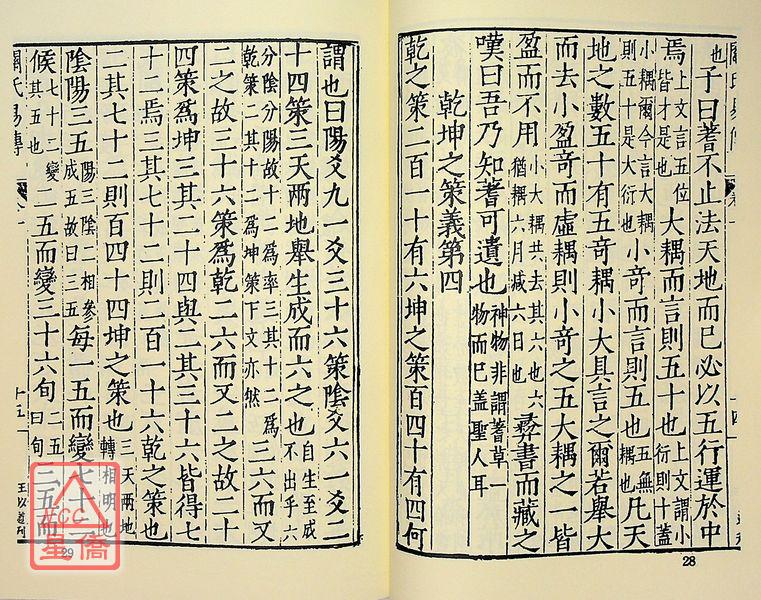 也子曰蓍不止法天地而已必以五行運於中
焉上文言五位皆才是也大耦而言則五十也上文謂小衍則十蓋
小耦爾今言大耦則五十是大衍也小奇而言則五也五無耦也凡天
地之數五十有五奇耦小大具言之爾若舉大
而去小盈奇而虛耦則小奇之五大耦之一皆
盈而不用小大耦共去其六也六猶耦六月減六日也彜書而藏之
嘆曰吾乃知蓍可遺也神物非謂蓍草一物而已蓋聖人耳
乾坤之策義第四
乾之策二百一十有六坤之策百四十有四何
28
謂也曰陽爻九一爻三十六策陰爻六一爻二
十四策三天兩地舉生成而六之也自生至成不出乎六
分陰分陽故十二為率三其十二為乾策二其十二為坤策下文亦然三六而又
二之故三十六策為乾二六而又二之故二十
四策為坤三其二十四與二其三十六皆得七
十二焉三其七十二則二百一十六乾之策也
二其七十二則百四十四坤之策也三天兩地轉相明也
陰陽三五陽三陰二相參成五故曰三五每一五而變七十二
候七十二變其五也二五而變三十六旬二五曰旬三五而
關氏易傳
十五
王以道刊
29
星僑